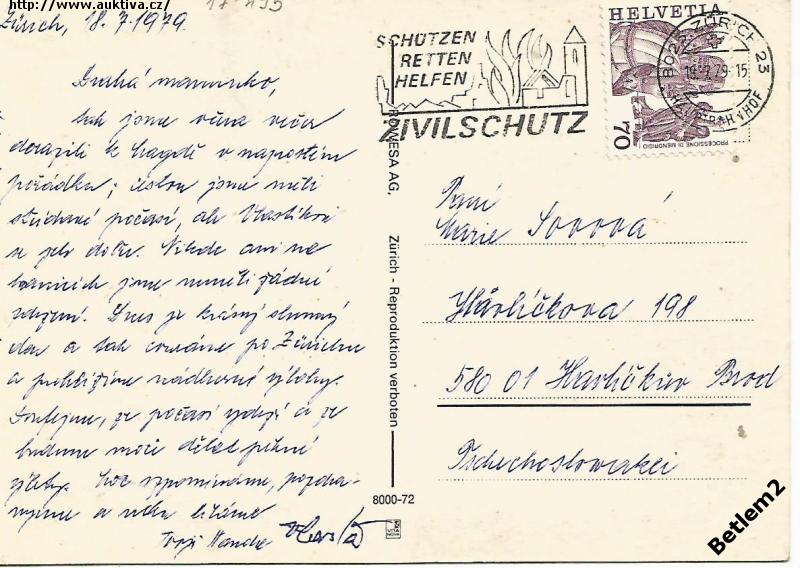 http://www.auktiva.cz/
17 495
Zürich, 18.7.1979.
Drahá maminko,
tak jsme včera večer
dorazili k Magdě v naprostém
pořádku; cestou jsme měli
střídavé počasí, ale Vlastíkovi
se jelo dobře. Nikde ani na
hranicích jsme neměli žádné
zdržení. Dnes je krásný slunný
den a tak couráme po Zürichu
a prohlížíme nádherné výlohy.
Doufejme, že počasí vydrží a že
budeme moci dělat pěkné
výlety. Moc vzpomínáme, pozdra-
vujeme a
Tvoji Vlasťa
ROWESA AG, Zürich - Reproduktion verboten
8000-72
SCHÜTZEN
RETTEN
HELFEN
ZIVILSCHUTZ
HELVETIA
70
PROCESSIONE DI MENDRISIO
8023 ZÜRICH 23
18.7.79-15
BAHNHOF
Paní
Marie Sovová
Havlíčkova 198
580 01 Havlíčkův Brod
Tschechoslowakei
Betlem2